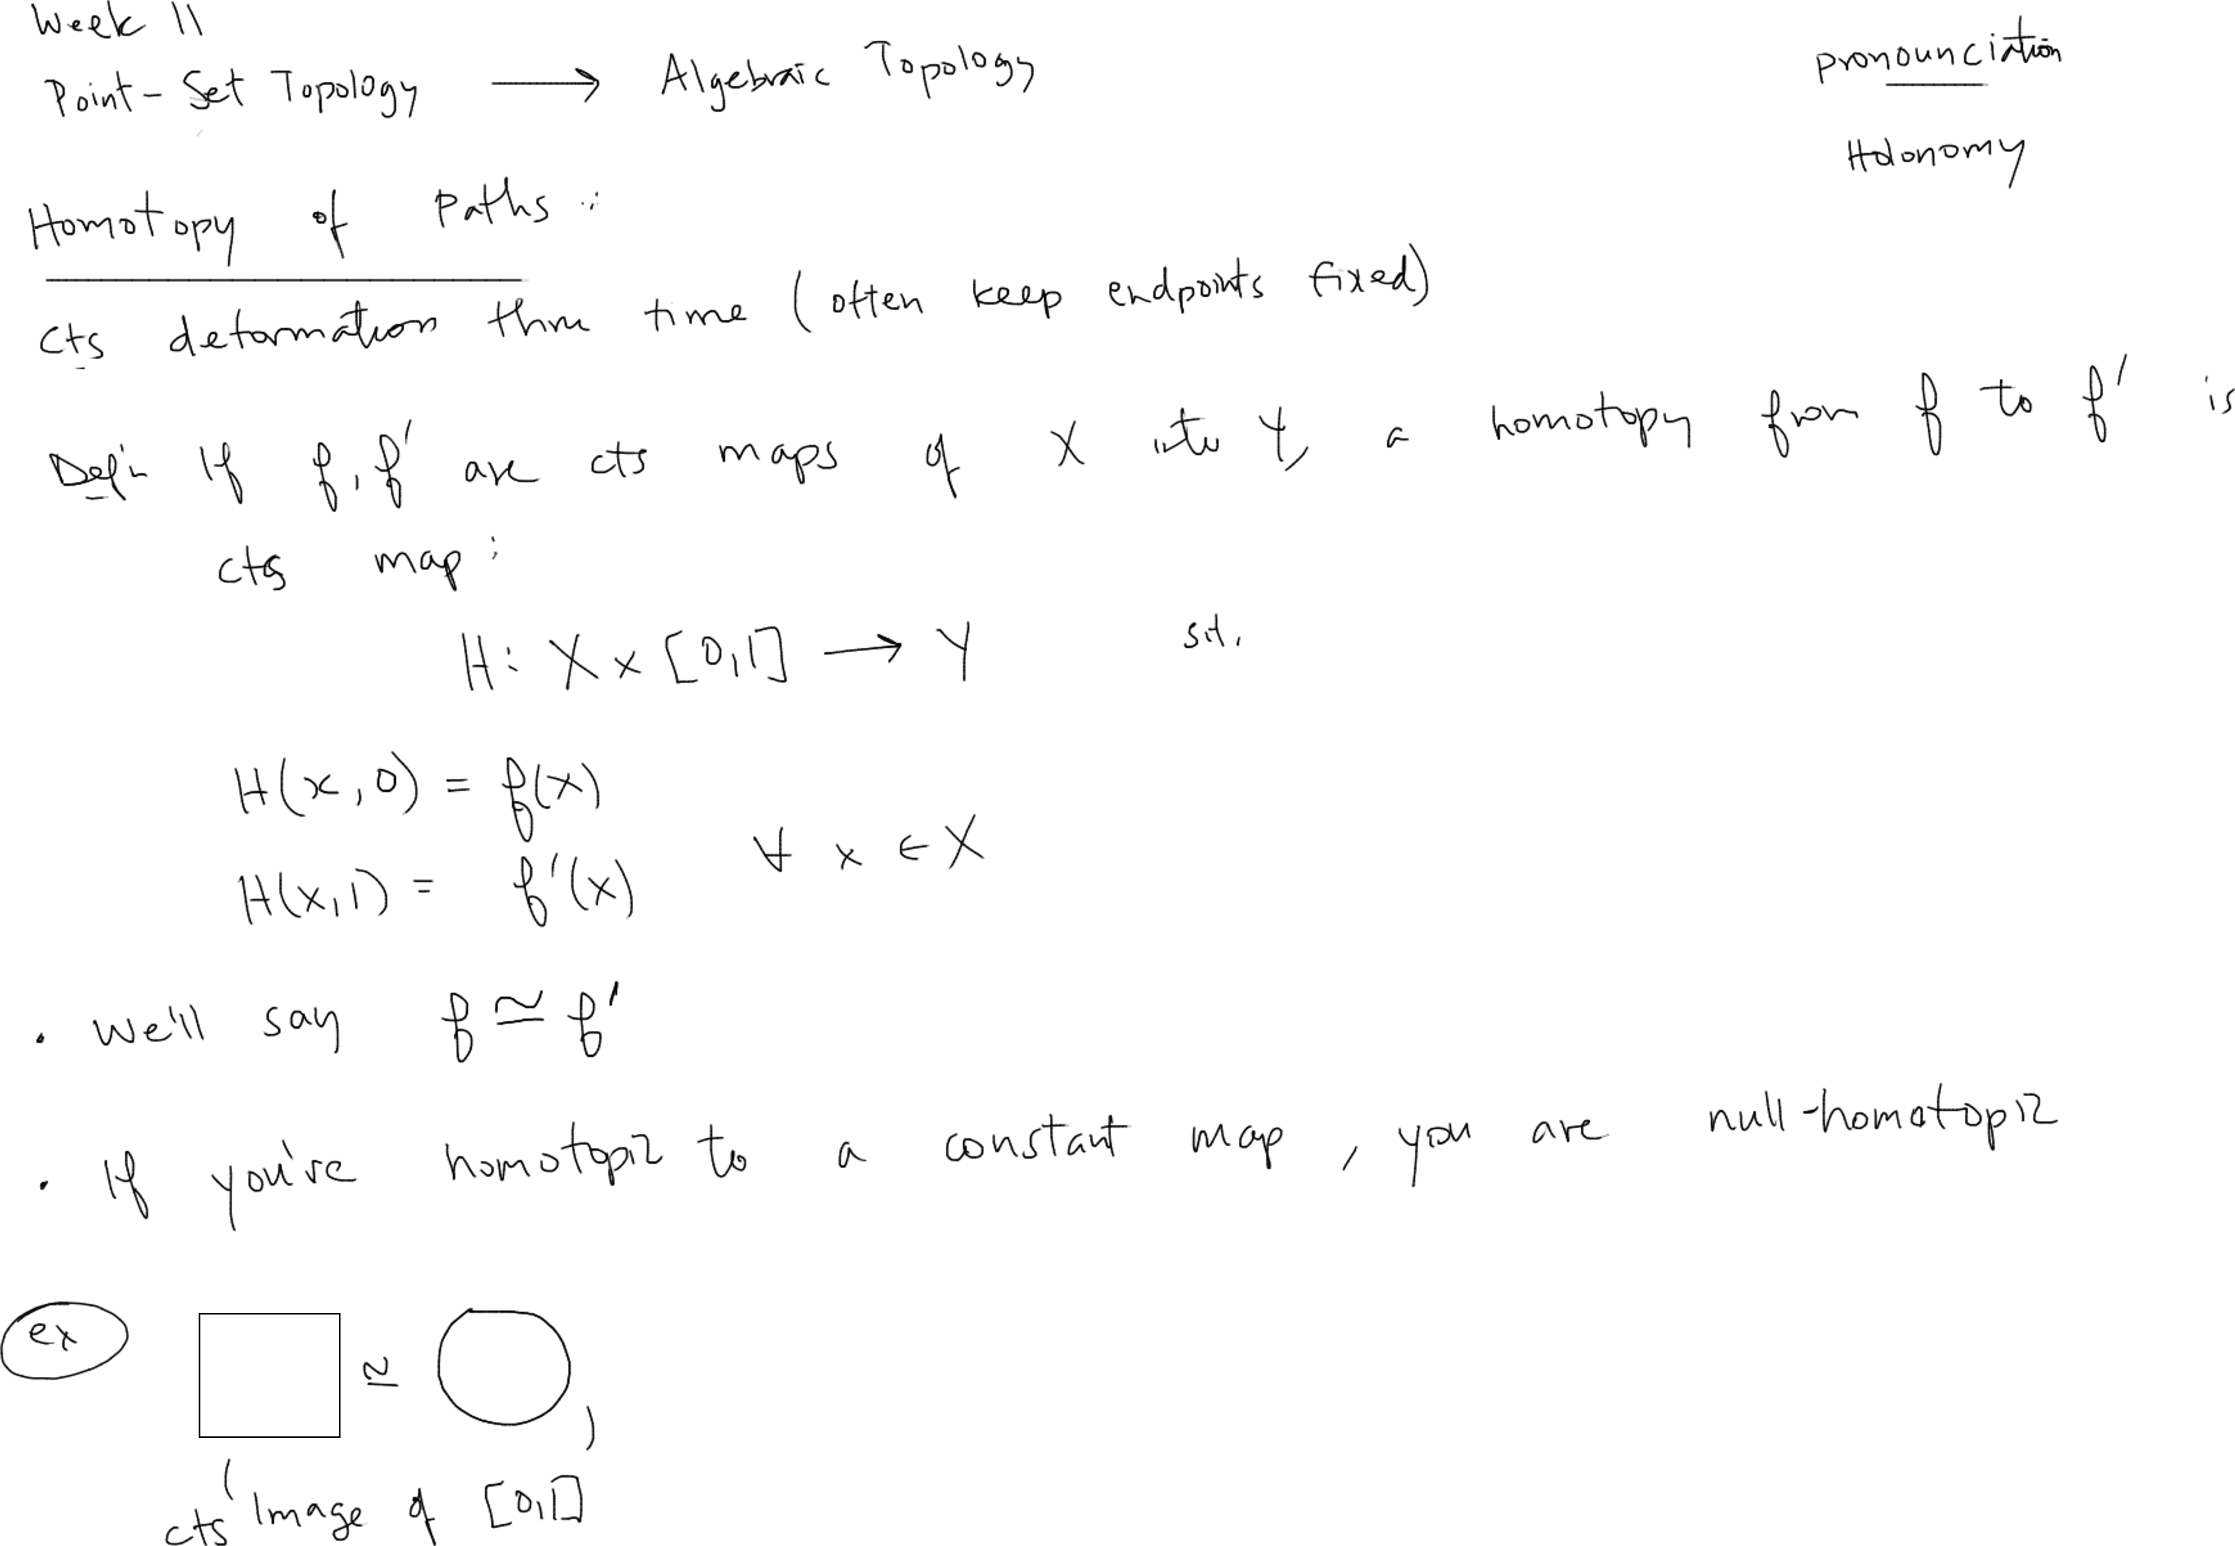 Week 11
Point-Set Topology ⟶ Algebraic Topology
pronounciation
Holonomy
Homotopy of Paths:
cts deformation thru time (often keep endpoints fixed)
Def'n If f, f' are cts maps of X into Y, a homotopy from f to f' is
cts map:
H: X × [0,1] ⟶ Y s.t.
H(x,0) = f(x)
∀ x ∈ X
H(x,1) = f'(x)
• We'll say f ≃ f'
• If you're homotopic to a constant map, you are null-homotopic
ex
≃ ,
cts image of [0,1]